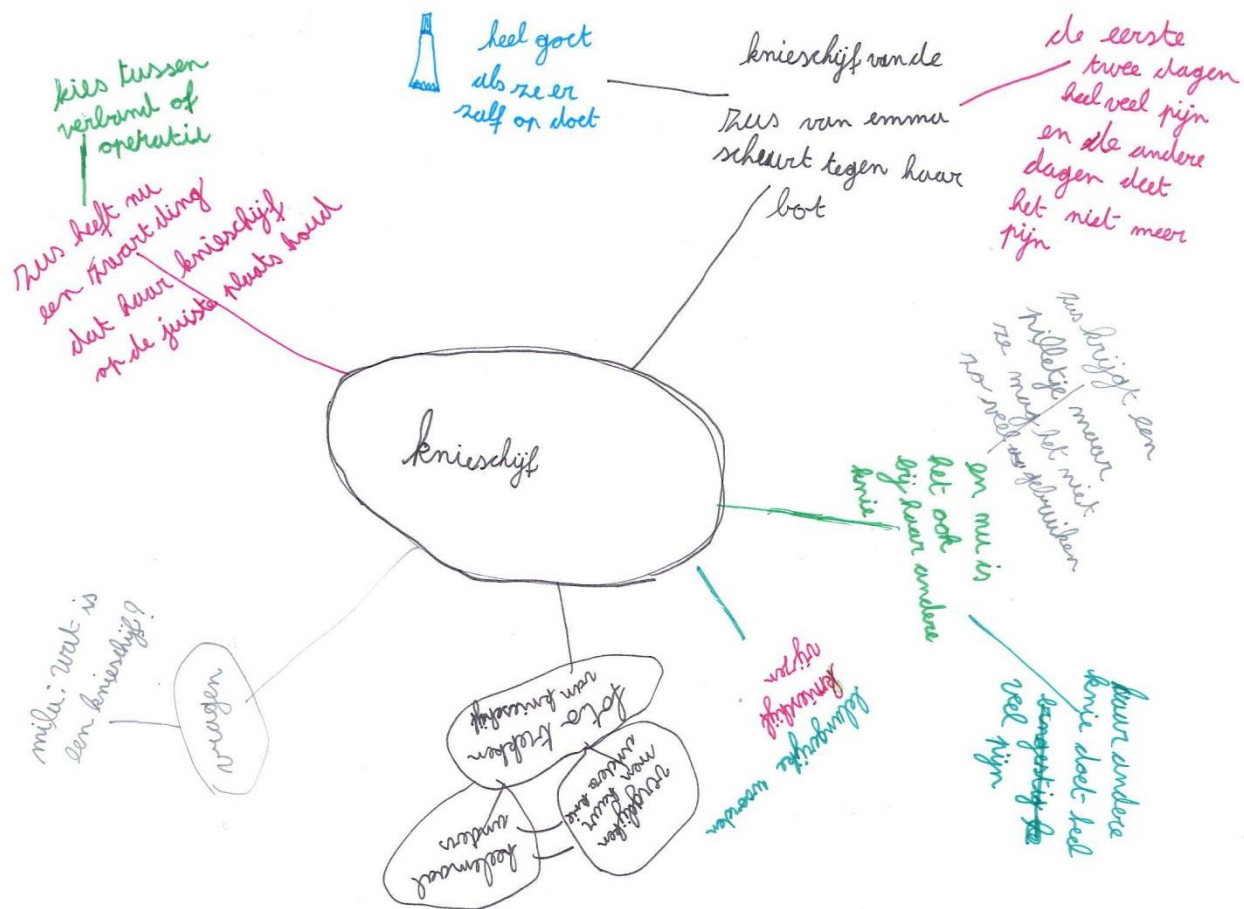 kies tussen
verband of
operatie
zus heeft nu
een zwart ding
dat haar knieschijf
op de juiste plaats houd
heel goet
als ze er
zalf op doet
knieschijf van de
zus van emma
scheurt tegen haar
bot
de eerste
twee dagen
heel veel pijn
en de andere
dagen deet
het niet meer
pijn
knieschijf
zus krijgt een
pilletje maar
ze mag het niet
zo veel gebruiken
en nu is
het ook
bij haar andere
knie
haar andere
knie doet heel
veel pijn
belangrijke woorden
knieschijf
foto trekken
van knieschijf
vergelijken
heelemaal
anders
vragen
milei wat is
een knieschijf?